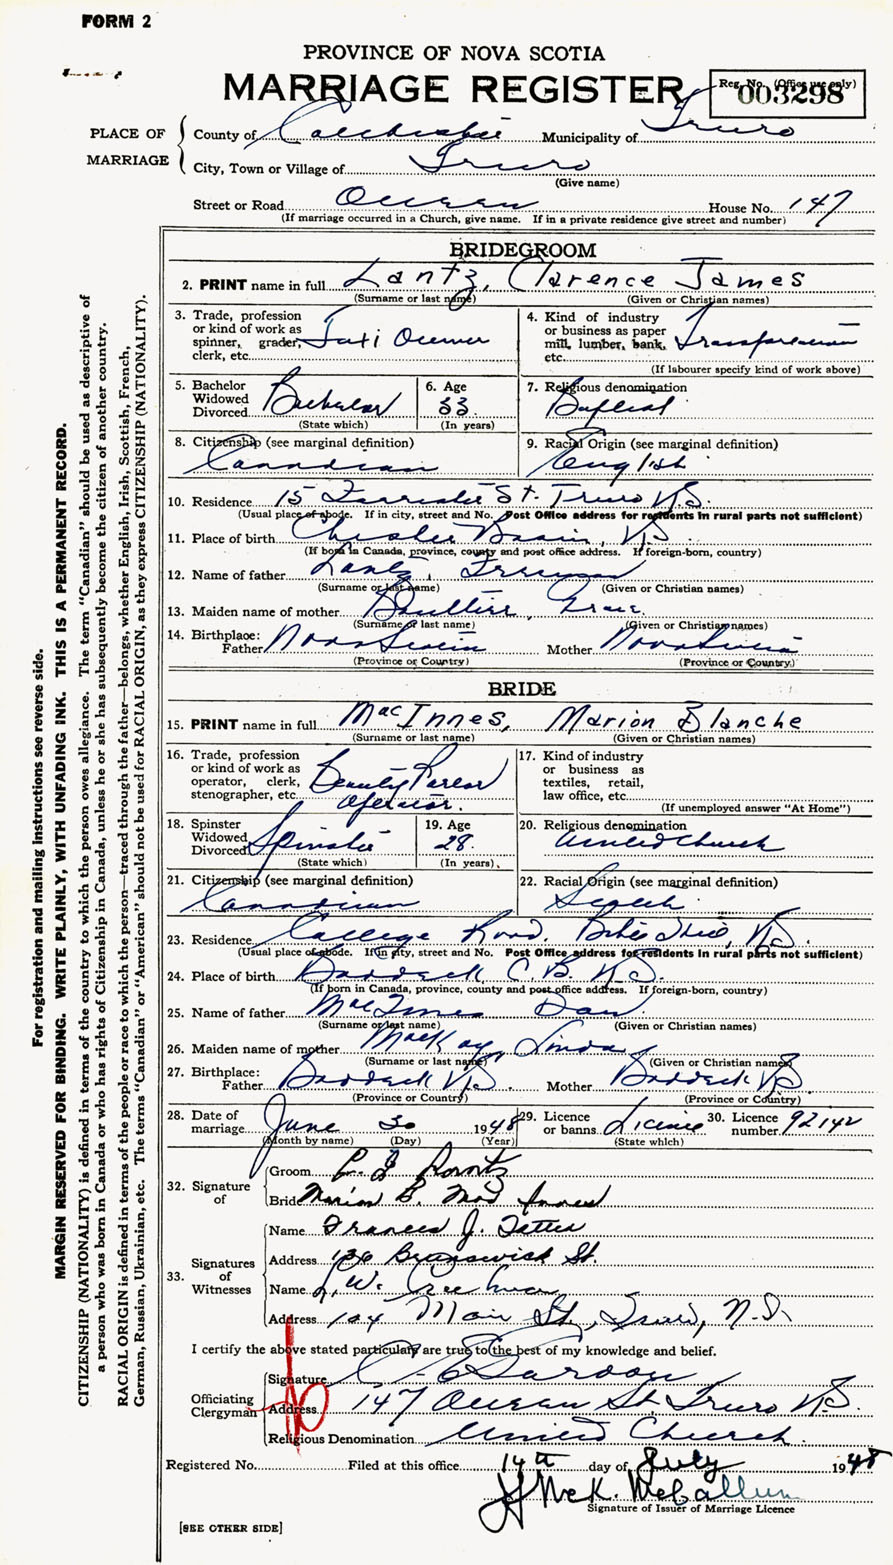 FORM 2
PROVINCE OF NOVA SCOTIA
MARRIAGE REGISTER
Reg. No. (Office use only)
003298
PLACE OF MARRIAGE
County of Colchester Municipality of Truro
City, Town or Village of Truro
(Give name)
Street or Road Queen House No. 147
(If marriage occurred in a Church, give name. If in a private residence give street and number)
BRIDEGROOM
2. PRINT name in full Lantz, Clarence James
(Surname or last name) (Given or Christian names)
3. Trade, profession or kind of work as spinner, grader, clerk, etc. Taxi Owner
4. Kind of industry or business as paper mill, lumber, bank, etc. Transportation
(If labourer specify kind of work above)
5. Bachelor Widowed Divorced Bachelor
(State which)
6. Age 33
(In years)
7. Religious denomination Baptist
8. Citizenship (see marginal definition) Canadian
9. Racial Origin (see marginal definition) English
10. Residence 15 St. Truro N.S.
(Usual place of abode. If in city, street and No. Post Office address for residents in rural parts not sufficient)
11. Place of birth Chester Basin, N.S.
(If born in Canada, province, county and post office address. If foreign-born, country)
12. Name of father Lantz, Freeman
(Surname or last name) (Given or Christian names)
13. Maiden name of mother
(Surname or last name) (Given or Christian names)
14. Birthplace: Father Nova Scotia Mother Nova Scotia
(Province or Country) (Province or Country)
BRIDE
15. PRINT name in full MacInnes, Marion Blanche
(Surname or last name) (Given or Christian names)
16. Trade, profession or kind of work as operator, clerk, stenographer, etc. Beauty Parlor Operator.
17. Kind of industry or business as textiles, retail, law office, etc.
(If unemployed answer "At Home")
18. Spinster Widowed Divorced Spinster
(State which)
19. Age 28.
(In years)
20. Religious denomination United Church
21. Citizenship (see marginal definition) Canadian
22. Racial Origin (see marginal definition) Scotch
23. Residence College Road, Bible Hill, N.S.
(Usual place of abode. If in city, street and No. Post Office address for residents in rural parts not sufficient)
24. Place of birth Baddeck C.B. N.S.
(If born in Canada, province, county and post office address. If foreign-born, country)
25. Name of father MacInnes Dan
(Surname or last name) (Given or Christian names)
26. Maiden name of mother MacKay, Linda
(Surname or last name) (Given or Christian names)
27. Birthplace: Father Baddeck N.S. Mother Baddeck N.S.
(Province or Country) (Province or Country)
28. Date of marriage June 30 1948
(Month by name) (Day) (Year)
29. Licence or banns Licence
(State which)
30. Licence number 92142
32. Signature of
Groom C. J. Lantz
Bride Marion B. MacInnes
33. Signatures of Witnesses
Name Frances J.
Address 136 Brunswick St.
Name L. W.
Address 104 Main St., Truro, N.S.
I certify the above stated particulars are true to the best of my knowledge and belief.
Officiating Clergyman
Signature
Address 147 Queen St. Truro N.S.
Religious Denomination United Church.
Registered No. Filed at this office 14th day of July 1948
J McK. McCallum
Signature of Issuer of Marriage Licence
[SEE OTHER SIDE]
For registration and mailing instructions see reverse side.
MARGIN RESERVED FOR BINDING. WRITE PLAINLY, WITH UNFADING INK. THIS IS A PERMANENT RECORD.
CITIZENSHIP (NATIONALITY) is defined in terms of the country to which the person owes allegiance. The term "Canadian" should be used as descriptive of
a person who was born in Canada or who has rights of Citizenship in Canada, unless he or she has subsequently become the citizen of another country.
RACIAL ORIGIN is defined in terms of the people or race to which the person—traced through the father—belongs, whether English, Irish, Scottish, French,
German, Russian, Ukrainian, etc. The terms "Canadian" or "American" should not be used for RACIAL ORIGIN, as they express CITIZENSHIP (NATIONALITY).